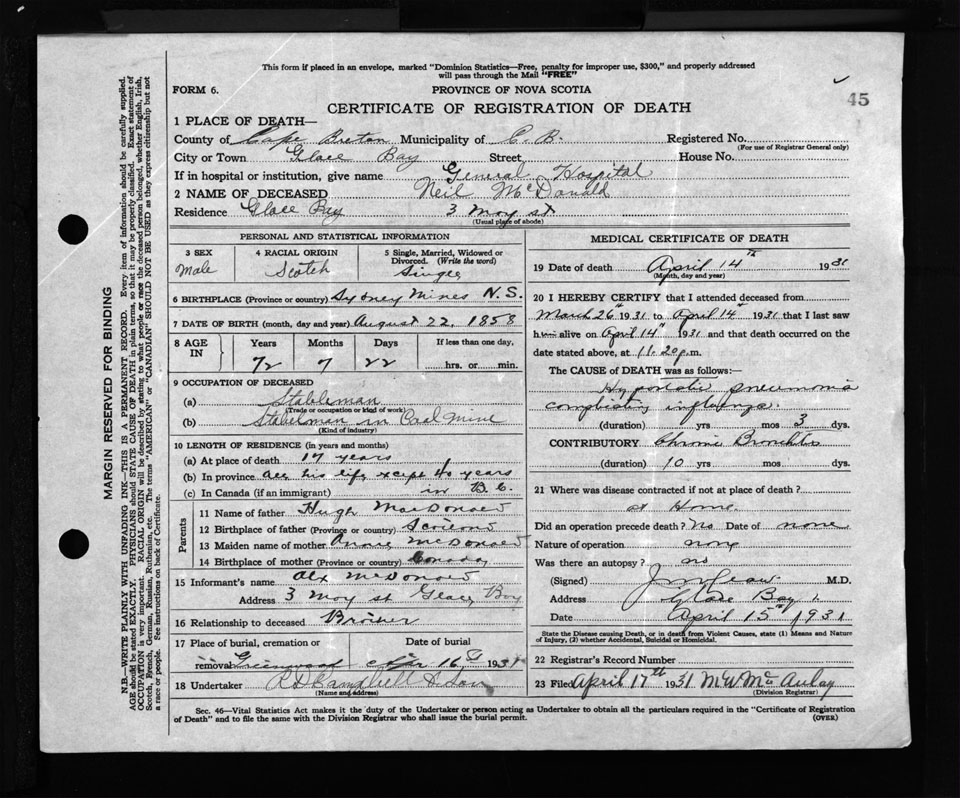 This form if placed in an envelope, marked "Dominion Statistics—Free, penalty for improper use, $300," and properly addressed
will pass through the Mail "FREE"
FORM 6.
PROVINCE OF NOVA SCOTIA
45
CERTIFICATE OF REGISTRATION OF DEATH
1 PLACE OF DEATH—
County of Cape Breton Municipality of C.B. Registered No.
(For use of Registrar General only)
City or Town Glace Bay Street House No.
If in hospital or institution, give name General Hospital
2 NAME OF DECEASED Neil McDonald
Residence Glace Bay 3 Moy st
(Usual place of abode)
PERSONAL AND STATISTICAL INFORMATION
3 SEX 4 RACIAL ORIGIN 5 Single, Married, Widowed or
Divorced. (Write the word)
Male Scotch Single
6 BIRTHPLACE (Province or country) Sydney Mines N.S.
7 DATE OF BIRTH (month, day and year) August 22, 1858
8 AGE IN Years Months Days If less than one day,
72 7 22 hrs. or min.
9 OCCUPATION OF DECEASED
(a) Stableman
(Trade or occupation or kind of work)
(b) Stableman in Coal Mine
(Kind of industry)
10 LENGTH OF RESIDENCE (in years and months)
(a) At place of death 17 years
(b) In province all his life except 40 years
(c) In Canada (if an immigrant) in B.C.
Parents
11 Name of father Hugh MacDonald
12 Birthplace of father (Province or country) Scotland
13 Maiden name of mother Annie McDonald
14 Birthplace of mother (Province or country) Canada
15 Informant's name Alex McDonald
Address 3 Moy st Glace Bay
16 Relationship to deceased Brother
17 Place of burial, cremation or Date of burial
removal Greenwood 16th 1931
18 Undertaker Campbell & Son
(Name and address)
MEDICAL CERTIFICATE OF DEATH
19 Date of death April 14th 1931
(Month, day and year)
20 I HEREBY CERTIFY that I attended deceased from
March 26th 1931 to April 14th 1931 that I last saw
him alive on April 14th 1931 and that death occurred on the
date stated above, at 11.20 p.m.
The CAUSE of DEATH was as follows:—
Hypostatic pneumonia
complicating influenza.
(duration) yrs mos 3 dys.
CONTRIBUTORY Chronic Bronchitis
(duration) 10 yrs mos dys.
21 Where was disease contracted if not at place of death?
at Home.
Did an operation precede death? No Date of none
Nature of operation none
Was there an autopsy? no
(Signed) M.D.
Address Glace Bay
Date April 15th 1931
State the Disease causing Death, or in death from Violent Causes, state (1) Means and Nature
of Injury, (2) whether Accidental, Suicidal or Homicidal.
22 Registrar's Record Number
23 Filed April 17th 1931 M W McAulay
(Division Registrar)
Sec. 46—Vital Statistics Act makes it the duty of the Undertaker or person acting as Undertaker to obtain all the particulars required in the "Certificate of Registration
of Death" and to file the same with the Division Registrar who shall issue the burial permit.
(OVER)
MARGIN RESERVED FOR BINDING
N.B.—WRITE PLAINLY WITH UNFADING INK—THIS IS A PERMANENT RECORD. Every item of information should be carefully supplied.
AGE should be stated EXACTLY. PHYSICIANS should STATE CAUSE OF DEATH in plain terms, so that it may be properly classified. Exact statement of
OCCUPATION is very important. RACIAL ORIGIN will be described by stating to what people or race the deceased person belonged, whether English, Irish,
Scotch, French, German, Russian, Ruthenian, etc. The terms "AMERICAN" or "CANADIAN" SHOULD NOT BE USED as they express citizenship but not
a race or people. See instructions on back of Certificate.